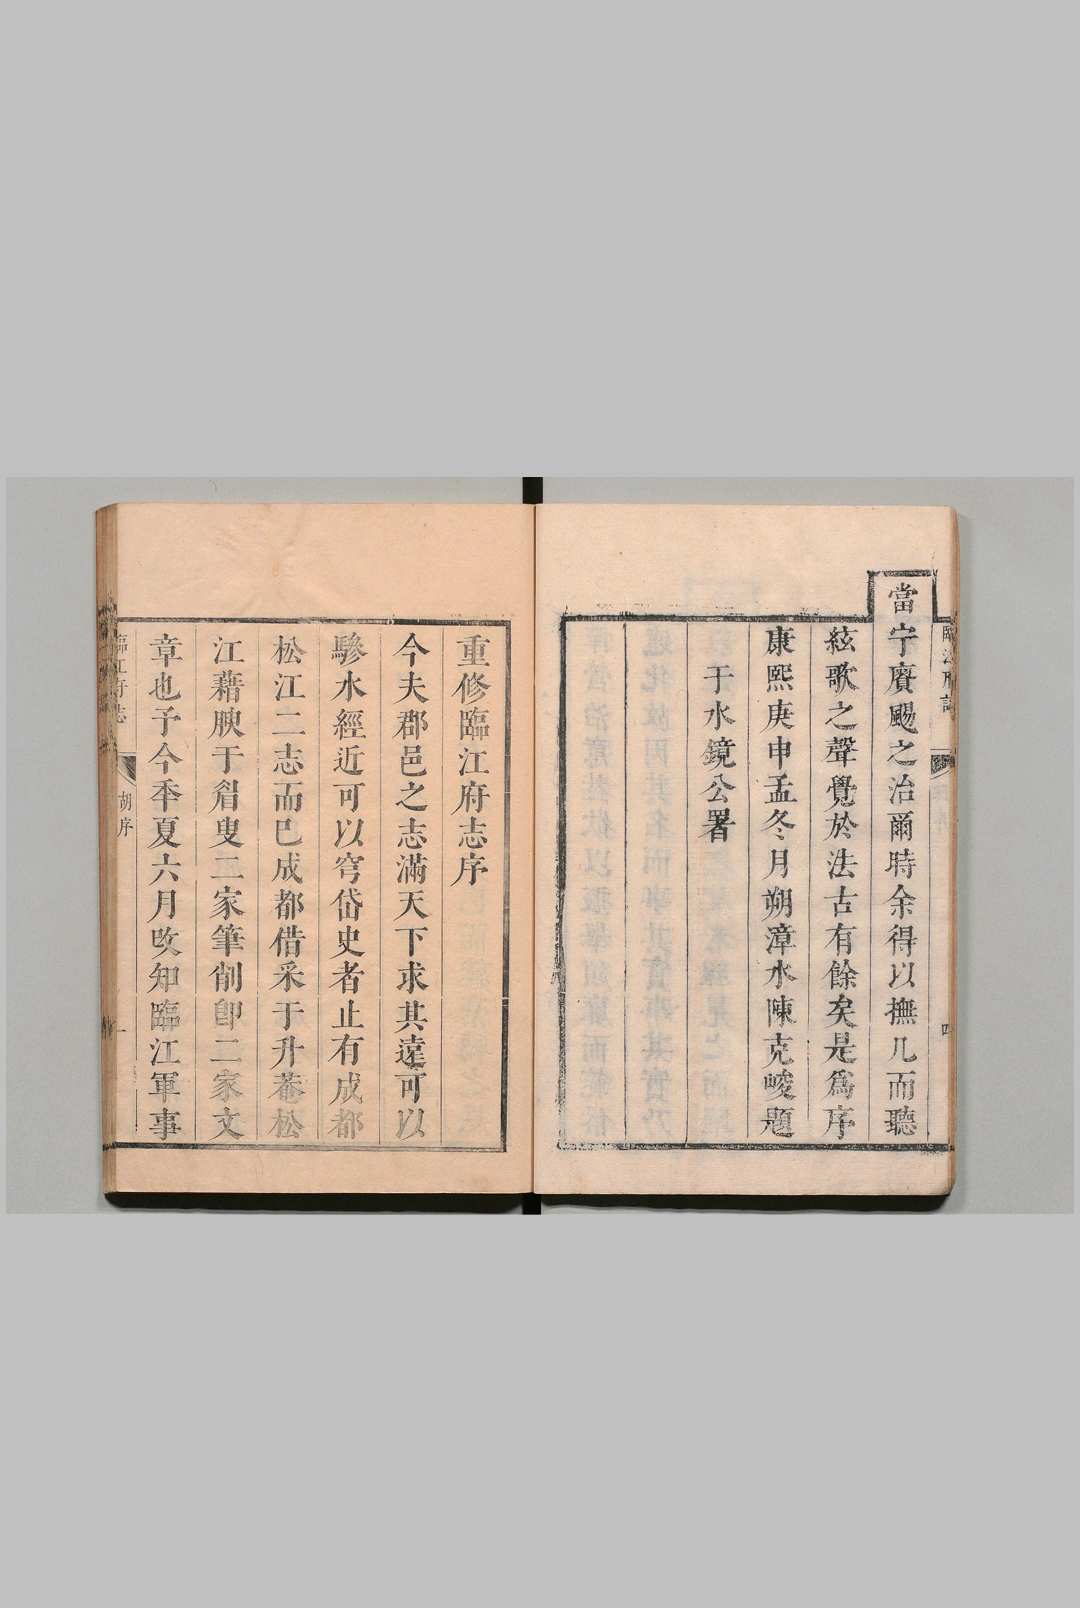 當宁賡颺之治爾時余得以撫几而聽
絃歌之聲覺於法古有餘矣是爲序
康熙庚申孟冬月朔漳水陳克峻題
于水鏡公署
四
重修臨江府志序
今夫郡邑之志滿天下求其遠可以
驂水經近可以穹岱史者止有成都
松江二志而已成都借采于升菴松
江藉腴于眉叟二家筆削卽二家文
章也予今年夏六月攺知臨江軍事
臨江府志
胡序
一